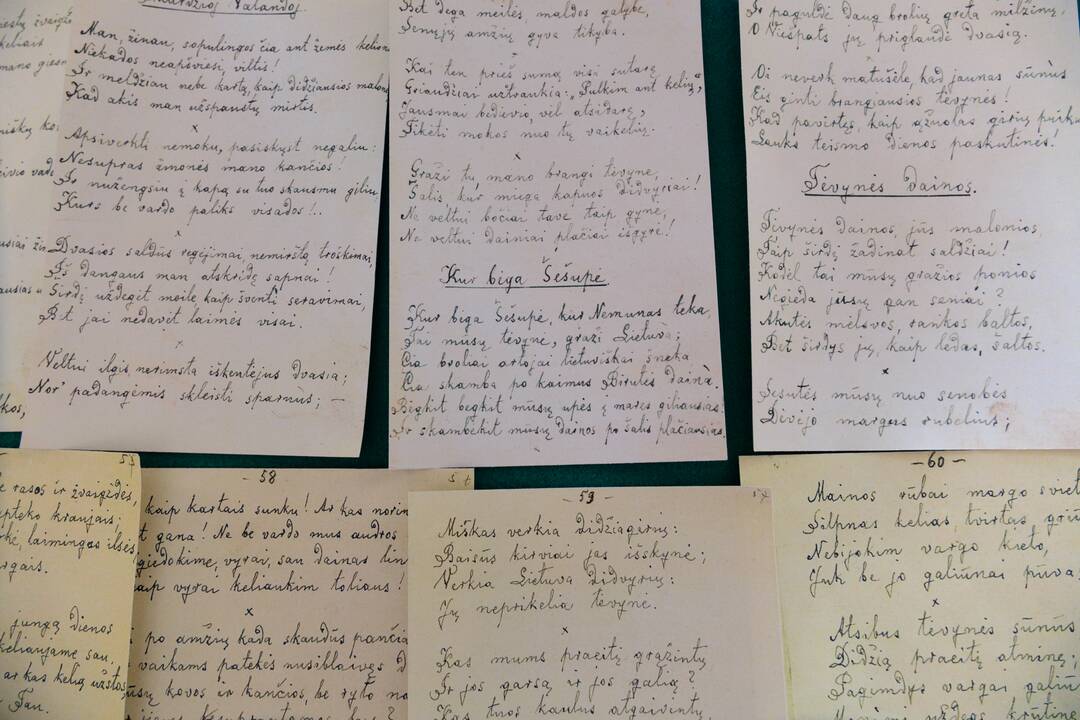 Valandoj
Man, žinau, sopulingos čia ant žemės
Niekados neapšviesi, viltis!
Ir meldžiau nebe kartą, kaip didžiausios
Kad akis man užspaustų mirtis.
x
Apsiverkti nemoku, pasiskųst negaliu:
Nesupras žmonės mano kančios!
Ir nužengsiu į kapą su tuo skausmu giliu
Kurs be vardo paliks visados!..
x
Dvasios saldūs regėjimai, nemirštą troškimai,
Iš dangaus man atskridę sapnai!
Širdį uždegėt meile, kaip šventi seravimai,
Bet jai nedavėt laimės visai.
x
Veltui ilgis, nerimsta iškentėjus dvasia;
Nor' padangėmis skleisti sparnus; –
Bet dega meilės, maldos galybe,
Senųjų amžių gyva tikyba.
x
Kai ten prieš sumą visi sutarę
Griaudžiai užtraukia: „Pulkim ant kelių“,
Jausmai bedievio vėl atsidarę,
Tikėti mokos nuo tų vaikelių.
x
Graži tu mano brangi tėvyne,
Šalis, kur miega kapuos didvyriai!
Ne veltui bočiai tave taip gynė,
Ne veltui dainiai plačiai išgyrė!
Kur bėga Šešupė.
Kur bėga Šešupė, kur Nemunas teka,
Tai mūsų tėvynė, graži Lietuva;
Čia broliai artojai lietuviškai šneka
Čia skamba po kaimus Birutės daina.
Bėgkit bėgkit mūsų upės į mares giliausias
Ir skambėkit mūsų dainos po šalis plačiausias.
Ir paguldė daug brolių greta milžinų,
O Viešpats jų priglaudė dvasią.
x
Oi neverk matušėle, kad jaunas sūnus
Eis ginti brangiausios tėvynės!
Kad pavirtęs, kaip ąžuolas girių
Lauks teismo dienos paskutinės!
Tėvynės dainos.
Tėvynės dainos, jūs malonios,
Taip širdį žadinat saldžiai!
Kodėl tai mūsų gražios ponios
Negieda jūsų gan seniai?
Akutės mėlsvos, rankos baltos,
Bet širdys jų, kaip ledas, šaltos.
x
Sesutės mūsų nuo senobės
Dėvėjo margus rubelius;
57
rasos ir žvaigždės,
kraujais;
laimingas ilsės,
jungą dienos
keliaujame sau,
ar kas kelią užstos
Tau.
– 58
kaip kartais sunku! Ar kas
gana! Ne be vardo mus audros
giedokime, vyrai, sau dainas
vyrai keliaukim toliaus!
x
po amžių kada skaudūs
vaikams patekės nusiblaivęs
kovos ir kančios, be ryto
– 59 –
Miškas verkia didžiagirių:
Baisūs kirviai jas išskynė;
Verkia Lietuva didvyrių:
Jų neprikelia tėvynė.
x
Kas mums praeitį grąžintų
Ir jos garsą ir jos galią?
Kas tuos kaulus atgaivintų,
– 60 –
Mainos rūbai margo
Silpnas kelias, tvirtas
Nebijokim vargo kieto,
Juk be jo galiūnai
x
Atsibus tėvynės sūnūs
Didžią praeitį atminę;
Pagimdys vargai